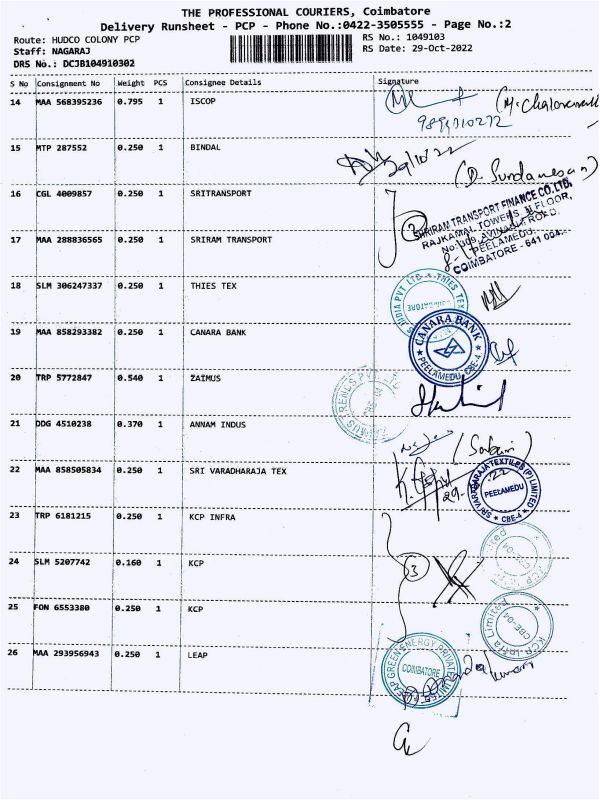 THE PROFESSIONAL COURIERS, Coimbatore
Delivery Runsheet - PCP - Phone No.:0422-3505555 - Page No.:2
Route: HUDCO COLONY PCP RS No.: 1049103
Staff: NAGARAJ RS Date: 29-Oct-2022
DRS No.: DCJB104910302
S No Consignment No Weight PCS Consignee Details Signature
14 MAA 568395236 0.795 1 ISCOP
15 MTP 287552 0.250 1 BINDAL
16 CGL 4009857 0.250 1 SRITRANSPORT
SHRIRAM TRANSPORT FINANCE CO.LTD.
RAJKAMAL TOWERS, II FLOOR,
PEELAMEDU,
COIMBATORE - 641 004.
17 MAA 288836565 0.250 1 SRIRAM TRANSPORT
18 SLM 306247337 0.250 1 THIES TEX
INDIA PVT LTD THIES TEX
COIMBATORE
19 MAA 858293382 0.250 1 CANARA BANK
CANARA BANK
PEELAMEDU, CBE-4
20 TRP 5772847 0.540 1 ZAIMUS
CBE-04
21 DDG 4510238 0.370 1 ANNAM INDUS
22 MAA 858505834 0.250 1 SRI VARADHARAJA TEX
SRI VARADHARAJA TEXTILES (P) LIMITED
PEELAMEDU
CBE-4
23 TRP 6181215 0.250 1 KCP INFRA
24 SLM 5207742 0.160 1 KCP
3
CBE-04
25 FON 6553380 0.250 1 KCP
KCP Infra Limited
CBE-04
26 MAA 293956943 0.250 1 LEAP
LEAP GREEN ENERGY PRIVATE LIMITED
COIMBATORE